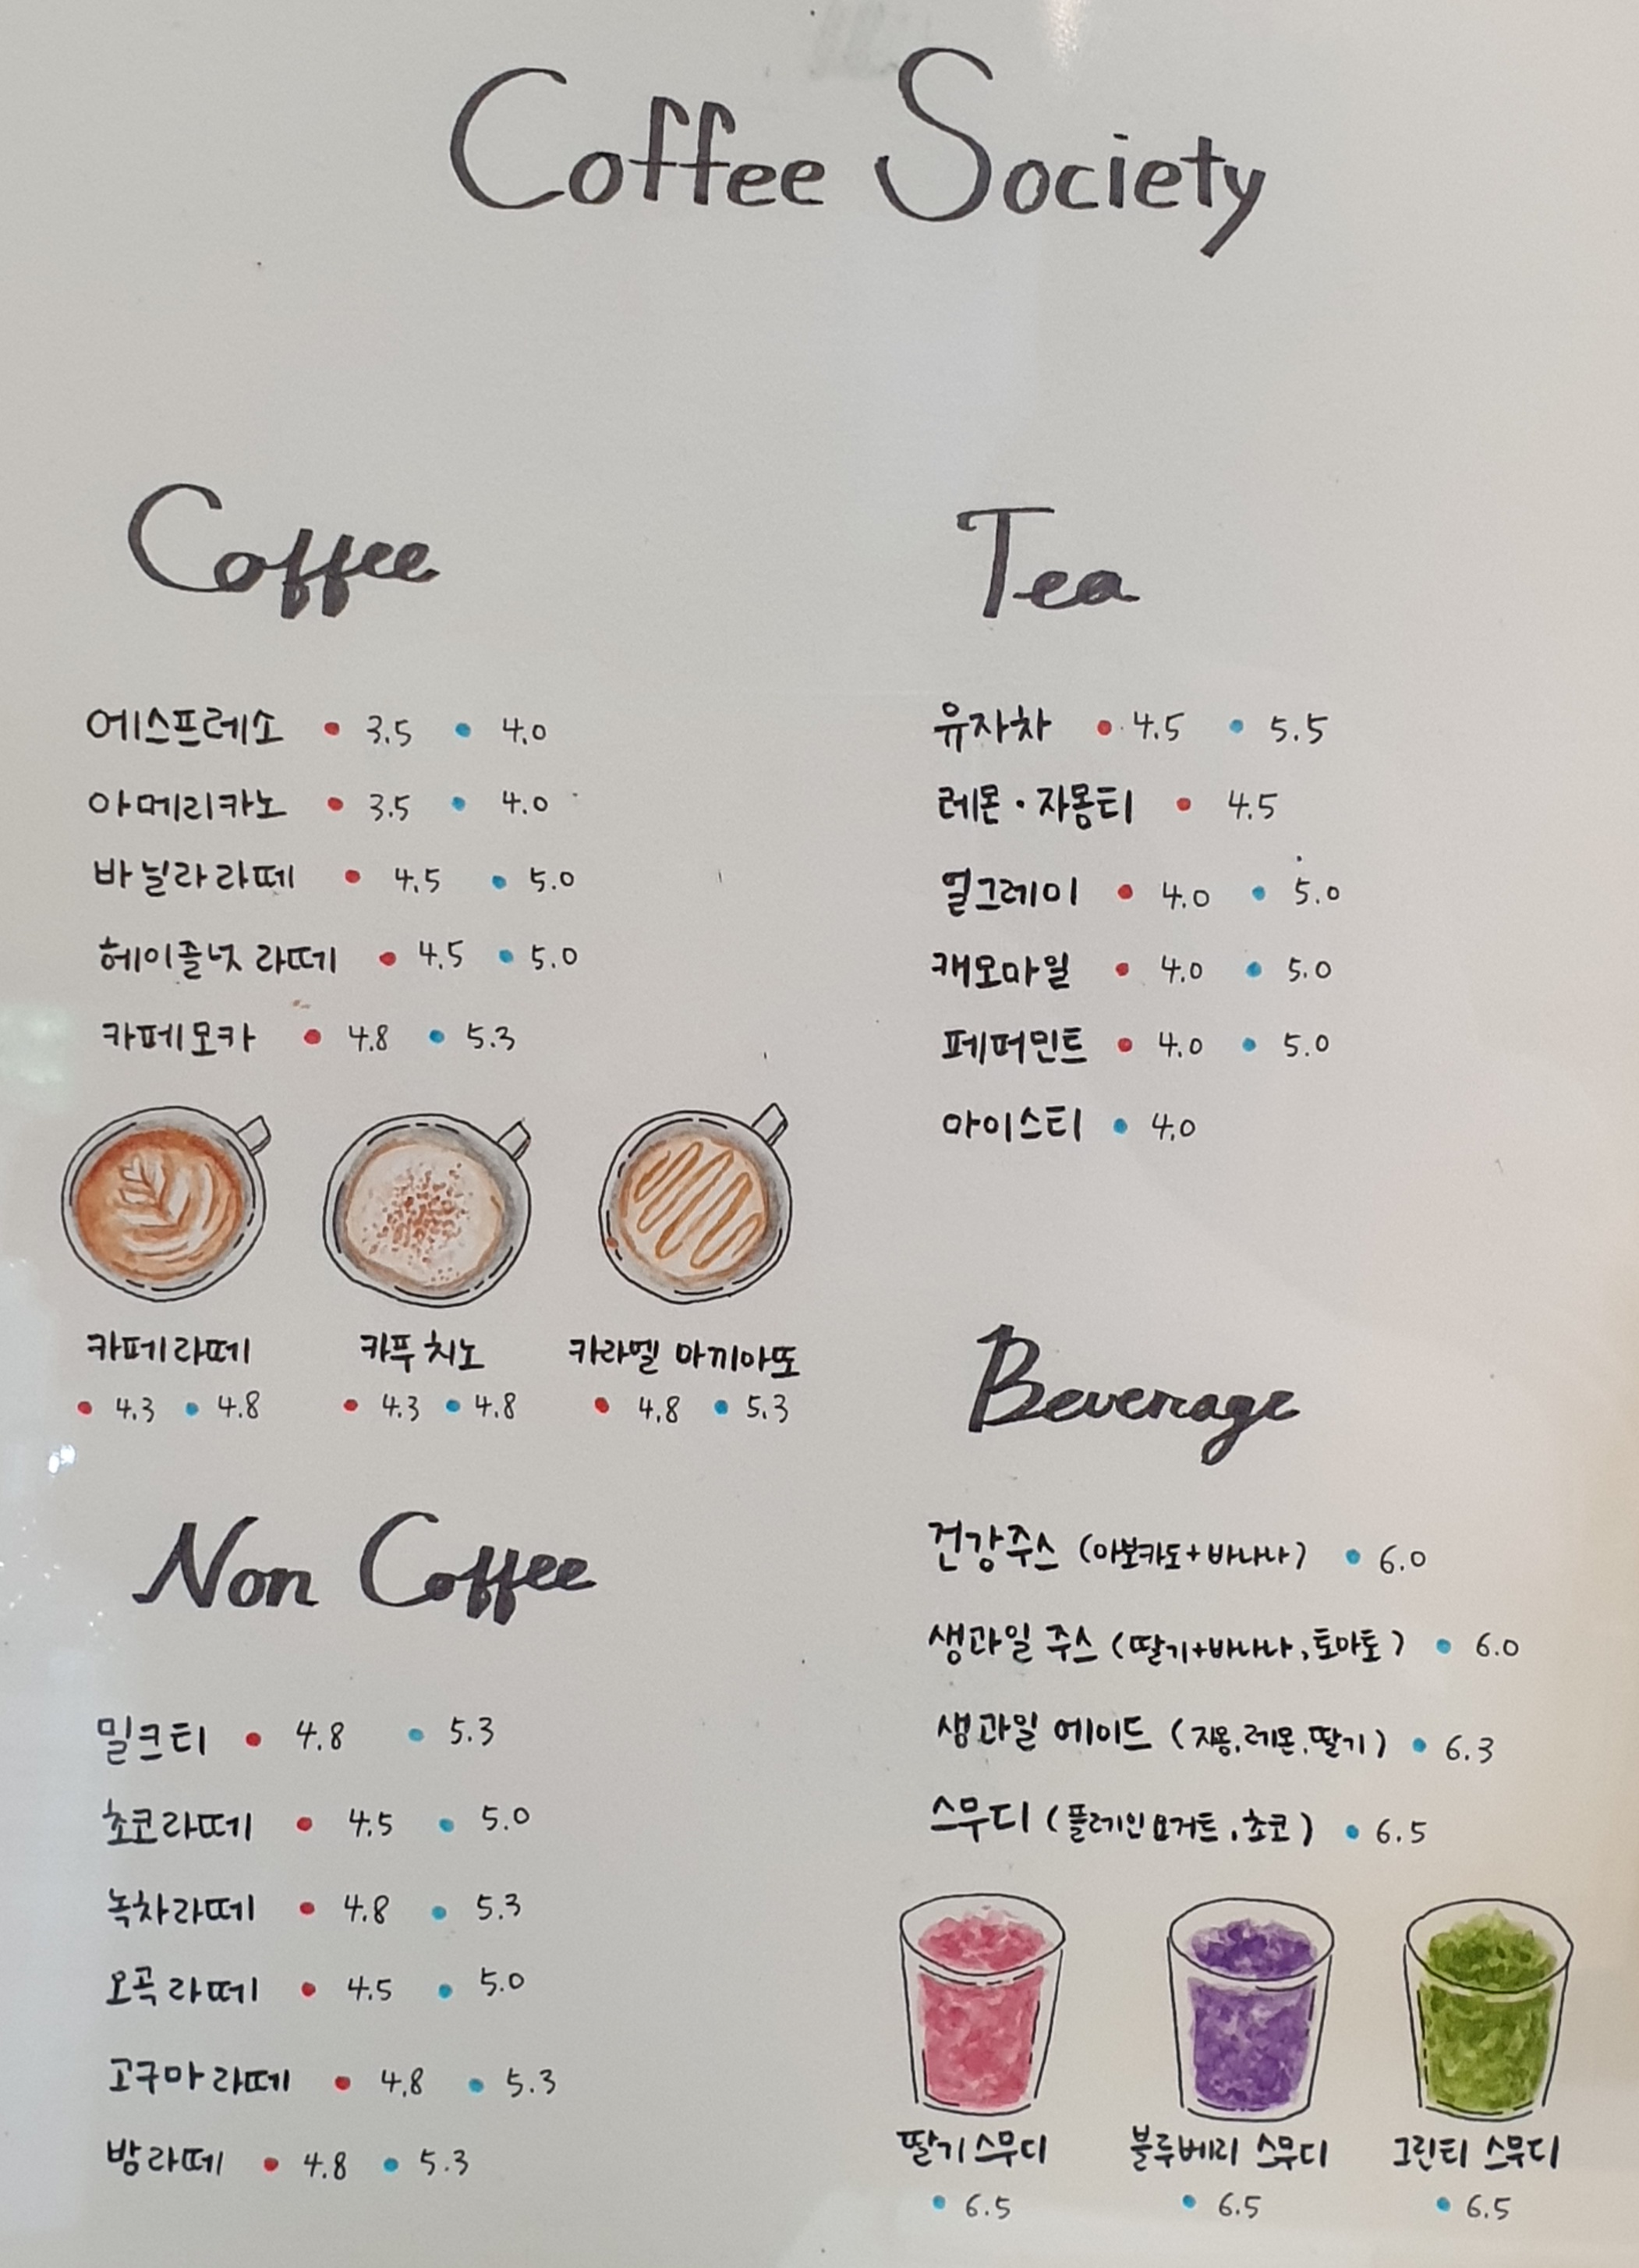 Coffee Society
Coffee
에스프레소 • 3.5 • 4.0
아메리카노 • 3.5 • 4.0
바닐라라떼 • 4.5 • 5.0
헤이즐넛 라떼 • 4.5 • 5.0
카페모카 • 4.8 • 5.3
카페라떼 카푸치노 카라멜 마끼아또
• 4.3 • 4.8 • 4.3 • 4.8 • 4.8 • 5.3
Non Coffee
밀크티 • 4.8 • 5.3
초코라떼 • 4.5 • 5.0
녹차라떼 • 4.8 • 5.3
오곡라떼 • 4.5 • 5.0
고구마라떼 • 4.8 • 5.3
밤라떼 • 4.8 • 5.3
Tea
유자차 • 4.5 • 5.5
레몬·자몽티 • 4.5
얼그레이 • 4.0 • 5.0
캐모마일 • 4.0 • 5.0
페퍼민트 • 4.0 • 5.0
아이스티 • 4.0
Beverage
건강주스 (아보카도+바나나) • 6.0
생과일 주스 (딸기+바나나, 토마토) • 6.0
생과일 에이드 (자몽, 레몬, 딸기) • 6.3
스무디 (플레인요거트, 초코) • 6.5
딸기스무디 블루베리 스무디 그린티 스무디
• 6.5 • 6.5 • 6.5